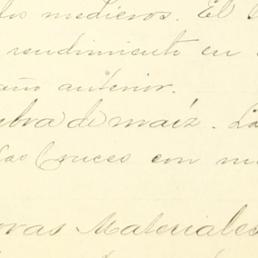 los medieros. El
rendimiento en
año anterior.
de maíz. La
Las Cruces con
Materiales